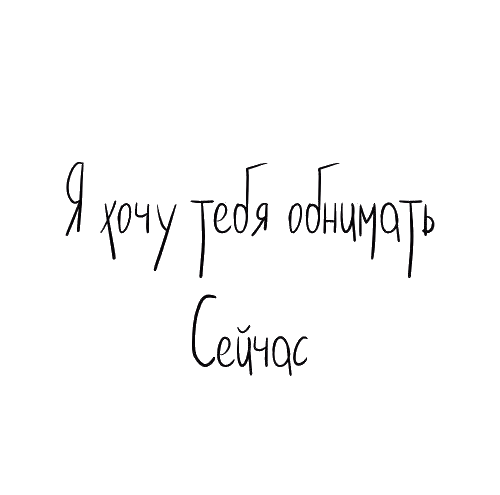 Я хочу тебя обнимать
Сейчас